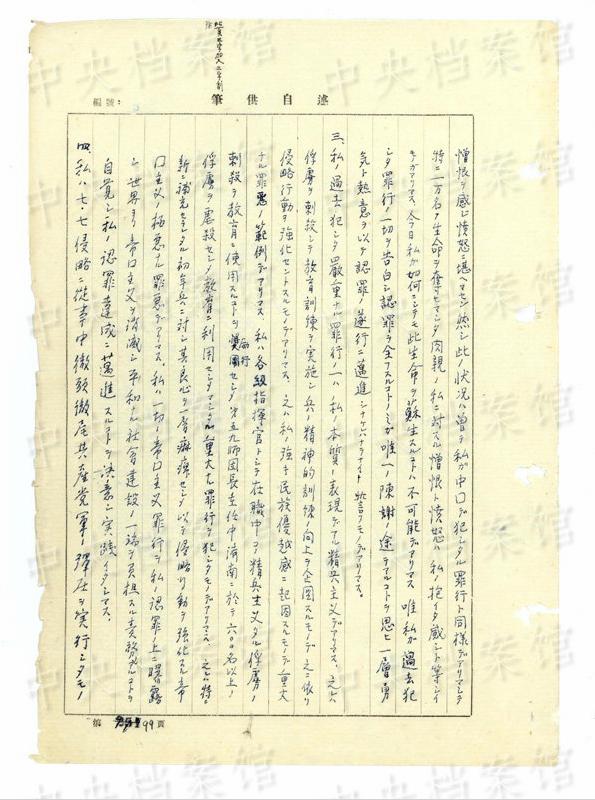 編號:
筆供自述
憎恨ヲ感ジ憤怒ニ堪ヘマセン。然シ此ノ状況ハ曽テ私ガ中口デ犯シタル罪行ト同様デアリマシテ
特ニ一万名ノ生命ヲ奪ヒマシタ肉親ノ私ニ対スル憎恨ト憤怒ハ私ノ抱イタ感ジト等シイ
モノデアリマス。今日私ガ如何ニシテモ此生命ヲ蘇生スルコトハ不可能デアリマス 唯私ガ過去犯
シタ罪行ノ一切ヲ告白シ認罪ヲ全フスルコトノミガ唯一ノ陳謝ノ途デアルコトヲ思ヒ一層勇
気ト熱意ヲ以テ認罪ノ遂行ニ邁進シナケレバナラナイト誓言フモノデアリマス。
三、私ノ過去犯シタ嚴重ナル罪行ノ一ハ私ノ本質ノ表現デアル精兵主義デアリマス。之レハ
俘虜ヲ刺殺シテ教育訓練ヲ実施シ兵ノ精神的訓練ノ向上ヲ企図スルモノデ之ニ依リ
侵略行動ヲ強化セントスルモノデアリマス。之ハ私ノ強キ民族優越感ニ起因スルモノデ重大
ナル罪悪ノ範例デアリマス 私ハ各級指揮官トシテ在職中コノ精兵主義タル俘虜ノ
刺殺ヲ教育ニ使用スルコトヲ励行セシメ 第五九師団長在任中済南ニ於テ六〇〇名以上ノ
俘虜ヲ虐殺セシメ教育ニ利用セシメマシタル重大ナル罪行ヲ犯シタモノデアリマス。之レ特ニ
新シ補充セラレタル初年兵ニ対シ其良心ヲ一層痲痺セシメ以テ侵略行動ヲ強化スル帝
口主义ノ極悪ナル罪悪デアリマス。私ハ一切ノ帝口主义罪行ヲ私ノ認罪ノ上ニ曝露
シ世界ヨリ帝口主义ヲ消滅シ平和ナル社会建設ノ一端ヲ負担スル責務アルコトヲ
自覚シ私ノ認罪達成ニ邁進スルコトヲ決意シ実践イタシマス。
四、私ハ七七侵略ニ従事中徹頭徹尾共産党軍ノ彈圧ヲ実行シタモノ
第 99 頁
中央档案馆